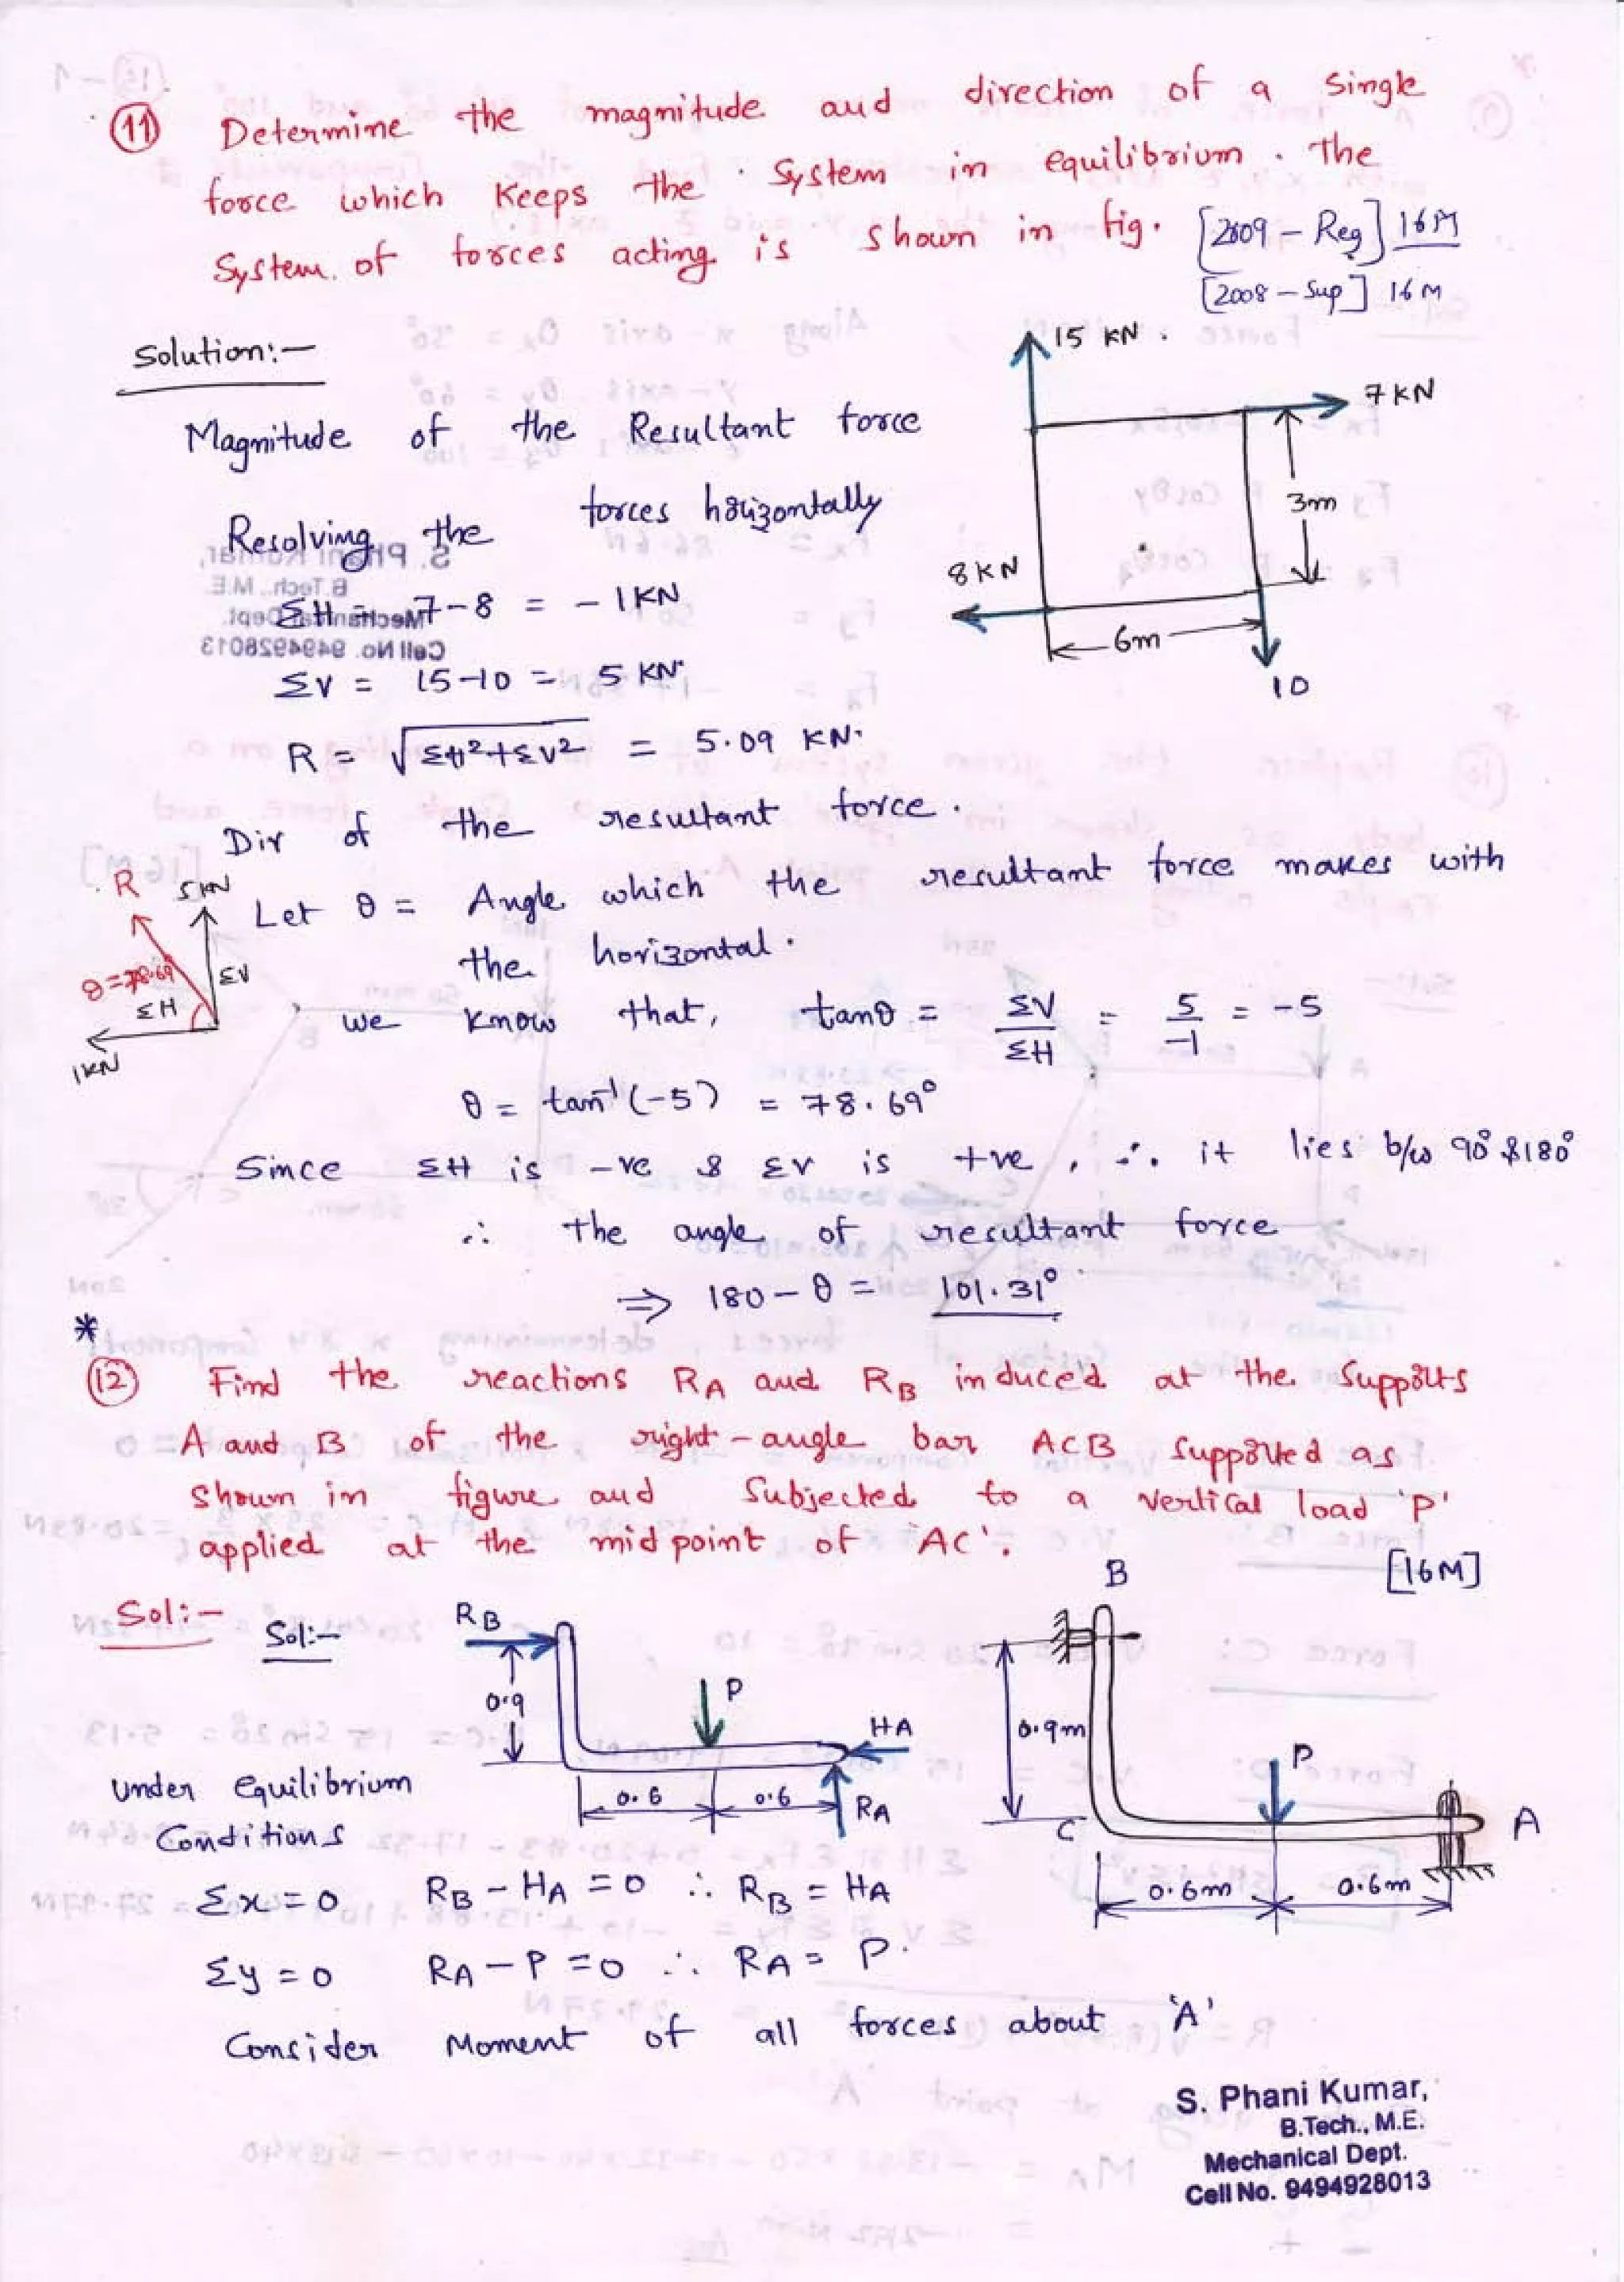 (11) Determine the magnitude and direction of a single
force which keeps the system in equilibrium. The
system of forces acting is shown in fig. [2009 - Reg] 16M
[2008 - Sup] 16 M
Solution:-
15 KN.
7 KN
3m
8 KN
6m
10
Magnitude of the Resultant force
Resolving the forces horizontally
ΣH = 7-8 = -1KN
ΣV = 15-10 = 5 KN
R = √ΣH²+ΣV² = 5.09 KN.
Dir of the resultant force.
Let θ = Angle which the resultant force makes with
the horizontal.
R
5KN
θ=78.69
ΣV
ΣH
1KN
we know that, tanθ = ΣV/ΣH = 5/-1 = -5
θ = tan⁻¹(-5) = 78.69°
Since ΣH is -ve & ΣV is +ve, ∴ it lies b/w 90° & 180°
∴ the angle of resultant force
⇒ 180 - θ = 101.31°
*
(12) Find the reactions RA and RB induced at the supports
A and B of the right-angle bar ACB supported as
shown in figure and subjected to a vertical load 'P'
applied at the mid point of 'AC'.
[16M]
Sol:-
Sol:-
RB
0.9
P
HA
0.6
0.6
RA
B
0.9m
P
C
A
0.6m
0.6m
under equilibrium
Conditions
Σx = 0 RB - HA = 0 ∴ RB = HA
Σy = 0 RA - P = 0 ∴ RA = P.
Consider Moment of all forces about 'A'
S. Phani Kumar,
B.Tech., M.E.
Mechanical Dept.
Cell No. 9494928013